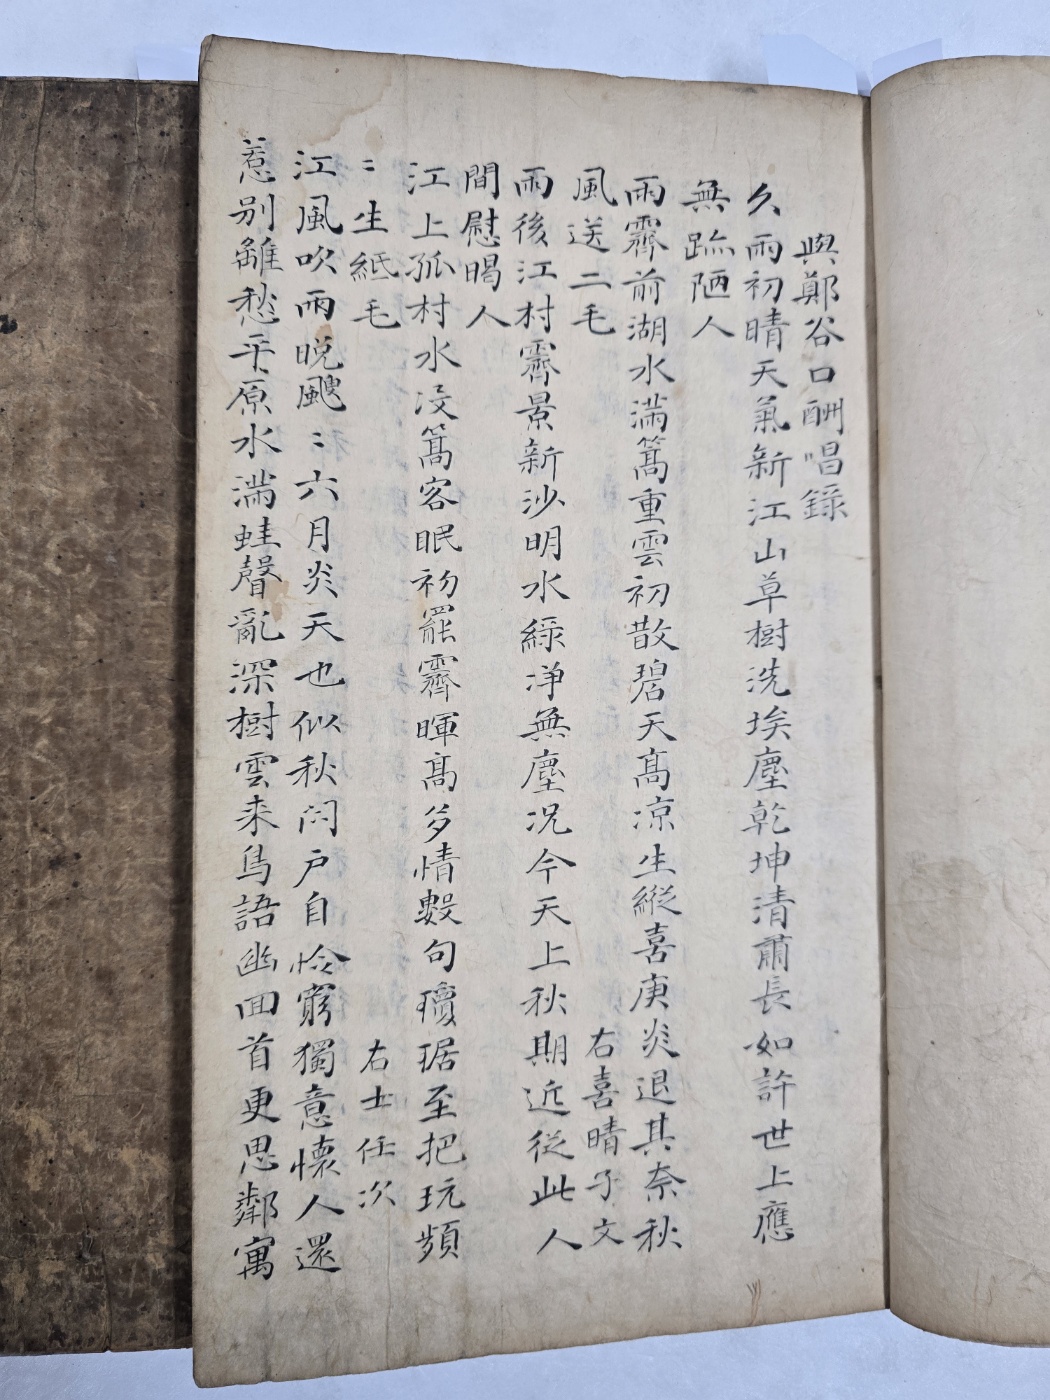 與鄭谷口酬唱錄
久雨初晴天氣新江山草樹洗埃塵乾坤清肅長如許世上應
無跡陋人
雨霽前湖水滿篙重雲初散碧天高凉生縱喜庚炎退其奈秋
風送二毛
右喜晴子文
雨後江村霽景新沙明水綠淨無塵况今天上秋期近從此人
間慰暍人
江上孤村水沒篙客眠初罷霽暉高多情數句瓊琚至把玩頻
〻生紙毛
右士任次
江風吹雨晩颼〻六月炎天也似秋闭戶自怜窮獨意懷人還
惹別離愁平原水滿蛙聲亂深樹雲来鳥語幽回首更思鄰寓